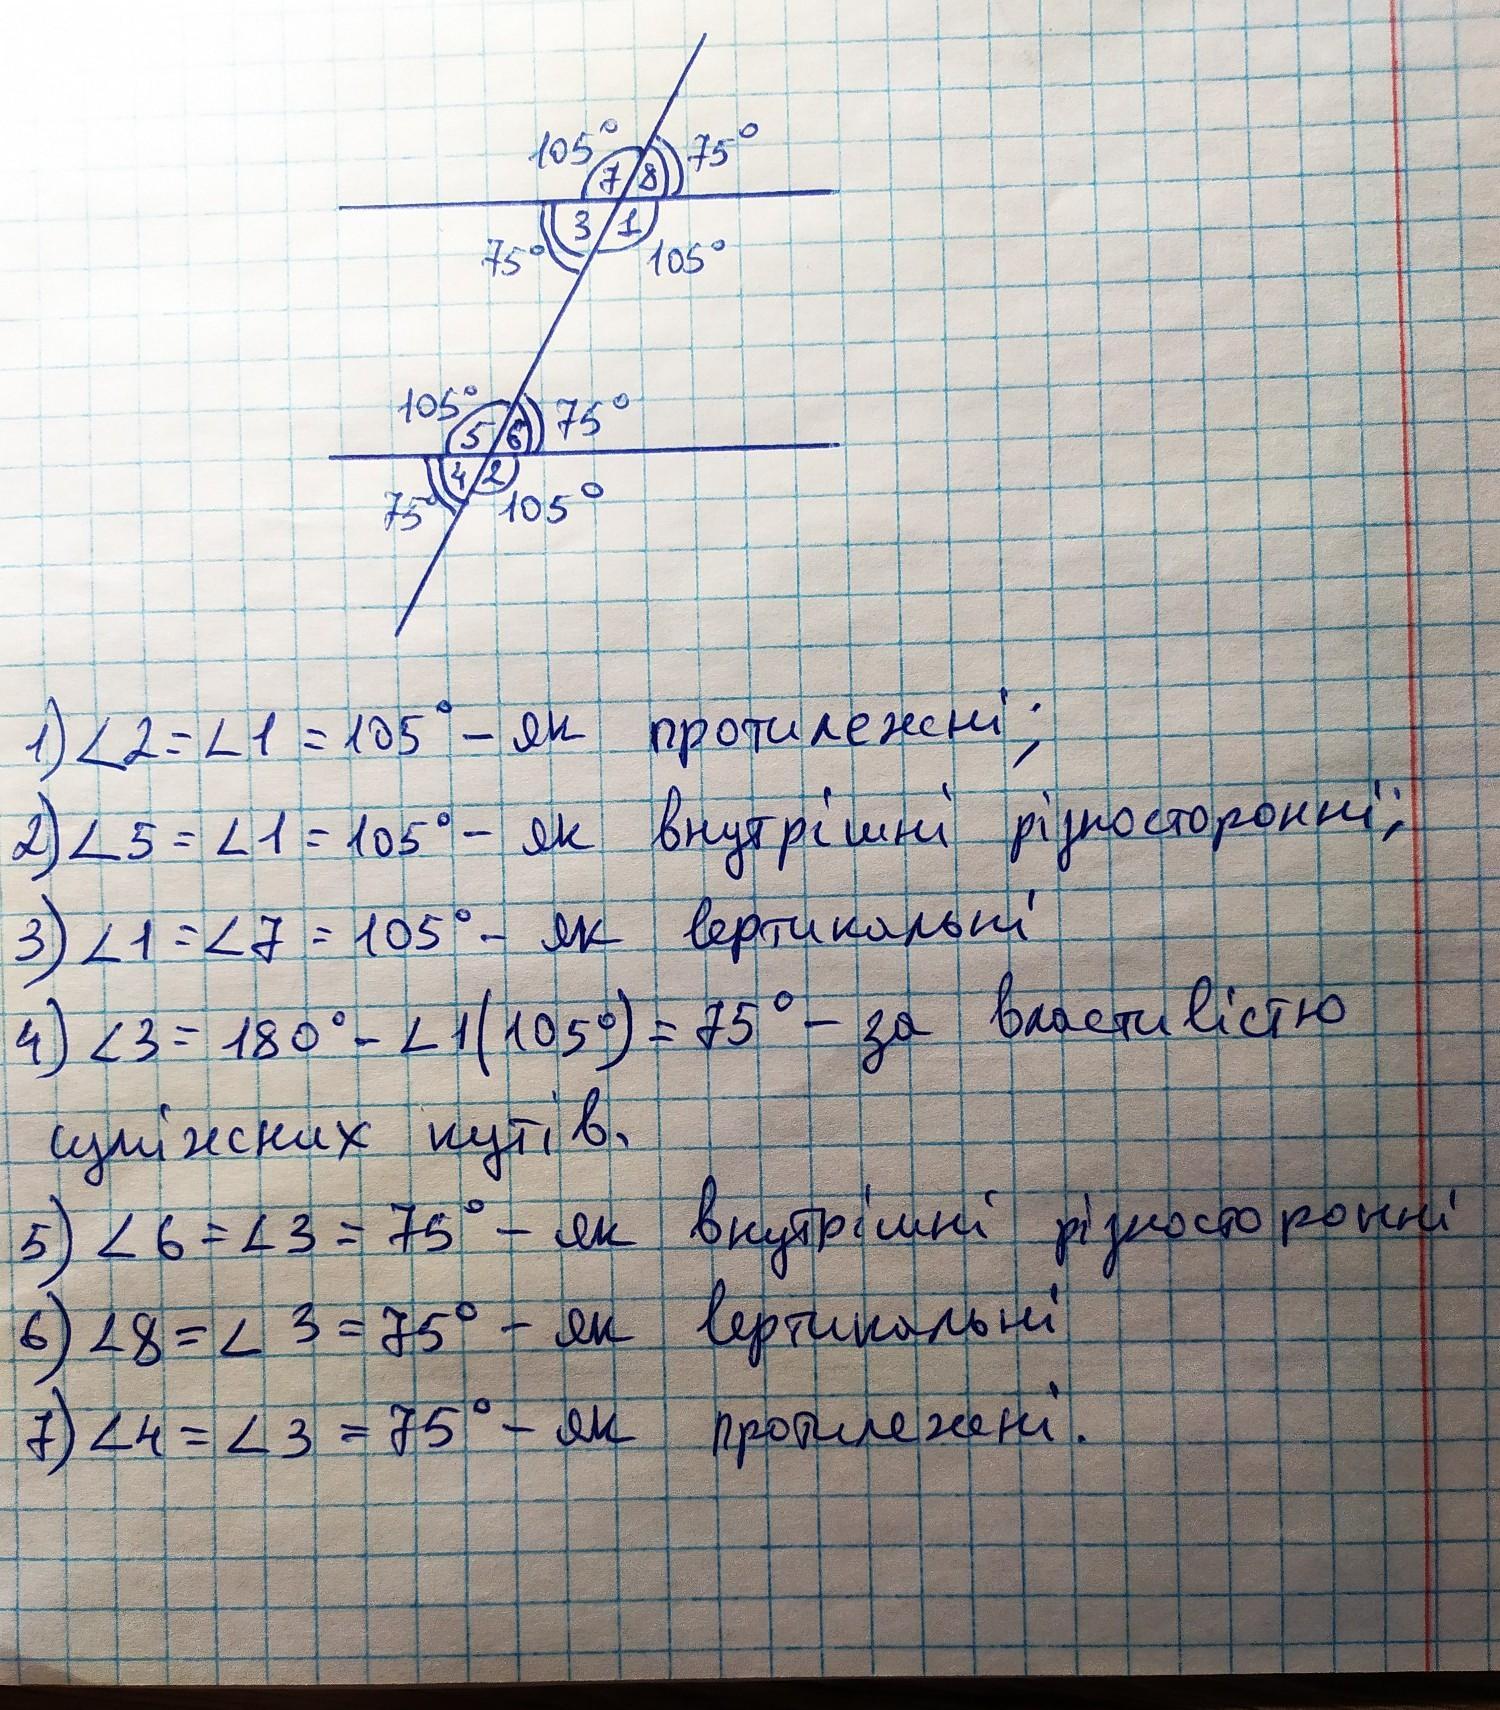 105° 75°
7 8
3 1
75° 105°
105° 75°
5 6
4 2
75° 105°
1) ∠2 = ∠1 = 105° - як протилежні;
2) ∠5 = ∠1 = 105° - як внутрішні різносторонні;
3) ∠1 = ∠7 = 105° - як вертикальні
4) ∠3 = 180° - ∠1(105°) = 75° - за властивістю
суміжних кутів.
5) ∠6 = ∠3 = 75° - як внутрішні різносторонні
6) ∠8 = ∠3 = 75° - як вертикальні
7) ∠4 = ∠3 = 75° - як протилежні.